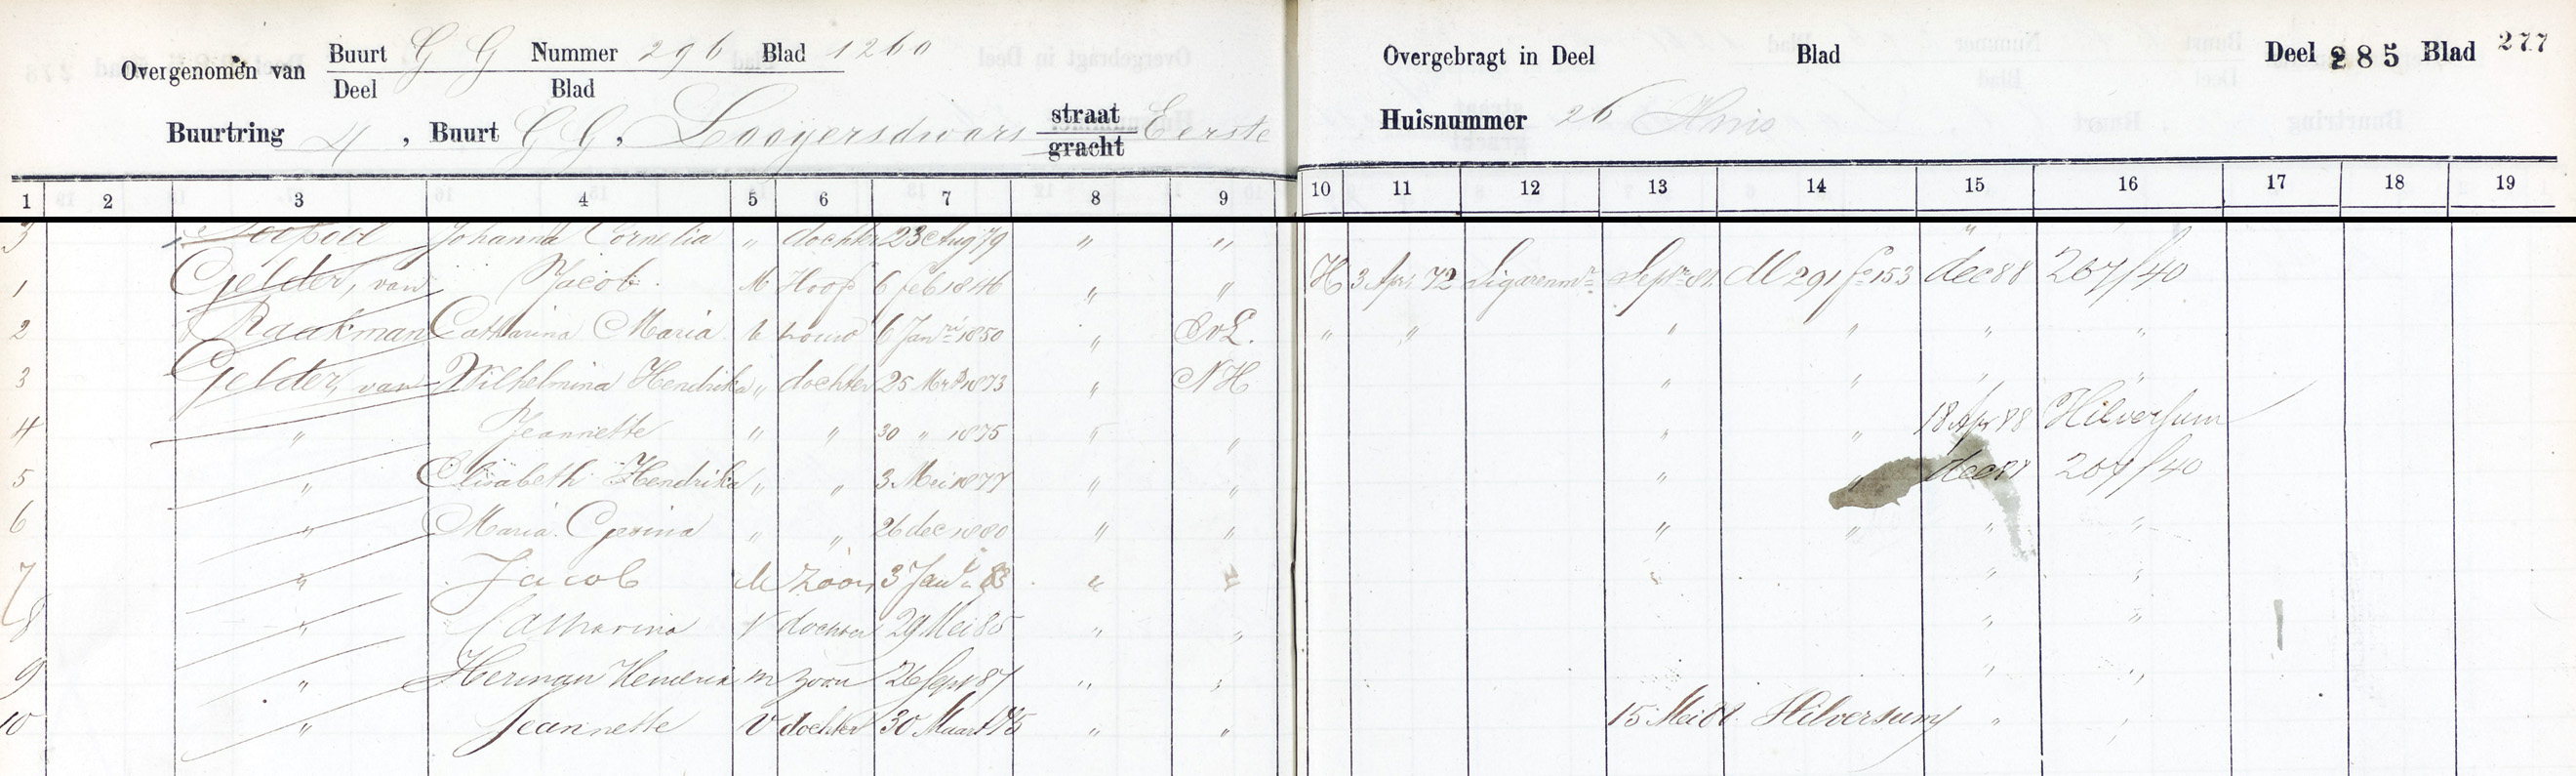 Overgenomen van Buurt G G Nummer 296 Blad 1260
Deel Blad
Buurtring 4, Buurt G G, Looyersdwars straat Eerste
gracht
Overgebragt in Deel Blad Deel 285 Blad 277
Huisnummer 26 Huis
1 2 3 4 5 6 7 8 9 10 11 12 13 14 15 16 17 18 19
3 Johanna Cornelia " dochter 23 Aug 79 " " "
1 Gelder, van Jacob M Hoofd 6 feb 1846 " " H 3 Apr 72 Sigarenmr Septr 81 Dl 291 fo 153 dec 88 267/40
2 Raakman Catharina Maria V vrouw 6 Janri 1850 " Ev L. " " " " " "
3 Gelder, van Wilhelmina Hendrika " dochter 25 Mrt 1873 " NH " " " "
4 " Jeannette " " 30 " 1875 " " " " 18 Apr 88 Hilversum
5 " Elisabeth Hendrika " " 3 Mei 1877 " " " " dec 88 267/40
6 " Maria Gesina " " 26 dec 1880 " " " " " "
7 " Jacob M Zoon 3 Jan 83 " " " " "
8 " Catharina V dochter 29 Mei 85 " " " "
9 " Herman Hendrik m zoon 26 Sept 87 " " " "
10 " Jeannette V dochter 30 Maart 75 " " 15 Mei 88 Hilversum " "